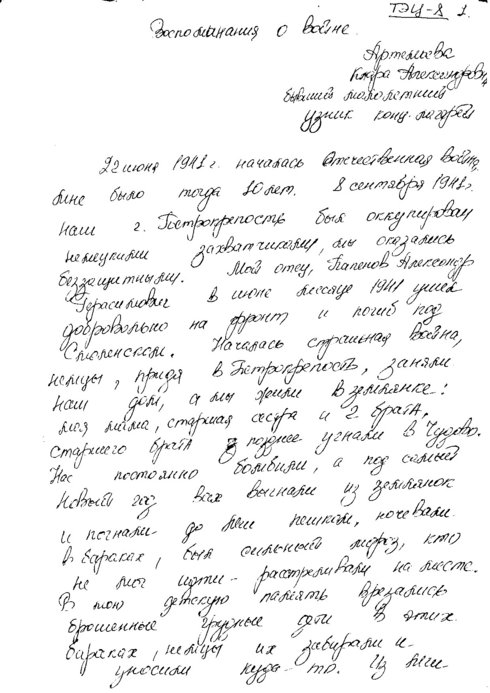 ТЭЦ-8 1.
Воспоминания о войне.
Артемьева
Клара Александровна
бывший малолетний
узник конц. лагерей
22 июня 1941 г. началась Отечественная война,
мне было тогда 10 лет. 8 сентября 1941 г.
наш г. Петрокрепость был оккупирован
немецкими захватчиками, мы оказались
беззащитными. Мой отец, Папенов Александр
Герасимович в июне месяце 1941 ушел
добровольно на фронт и погиб под
Смоленском. Началась страшная война,
немцы, придя в Петрокрепость, заняли
наш дом, а мы жили в землянке:
моя мама, старшая сестра и 2 брата.
старшего брата позднее угнали в Чудово.
Нас постоянно бомбили, а под самый
Новый год всех выгнали из землянок
и погнали до Мги пешком, ночевали
в бараках, был сильный мороз, кто
не мог идти - расстреливали на месте.
В мою детскую память врезались
брошенные грудные дети в этих
бараках, немцы их забирали и
уносили куда-то. Из Мги-